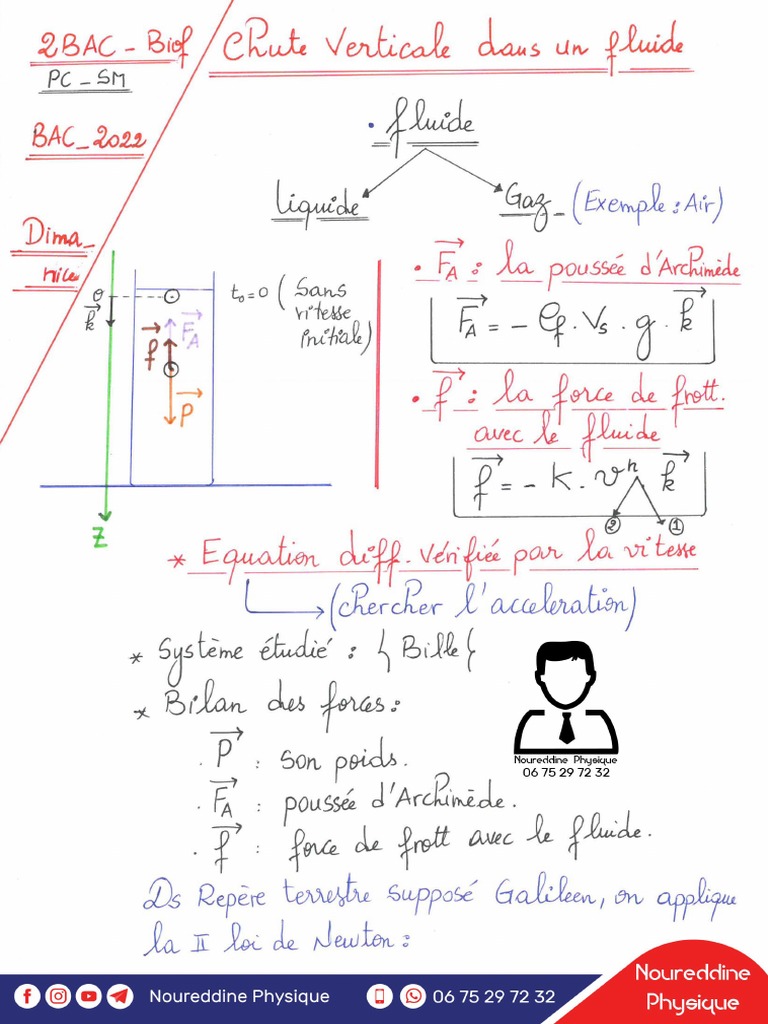 2BAC - Biof
PC - SM
Chute Verticale dans un fluide
BAC_2022
• fluide
Liquide
Gaz - (Exemple : Air)
Dima_
nice
• F_A : la poussée d'Archimède
F_A = - ρf . Vs . g . k
O
k
t₀ = 0 ( Sans
vitesse
initiale)
F_A
f
P
Z
• f : la force de frott.
avec le fluide
f = - K . vⁿ k
② ①
* Equation diff. vérifiée par la vitesse
(chercher l'acceleration)
* Système étudié : { Bille {
* Bilan des forces :
. P : son poids.
. F_A : poussée d'Archimède.
. f : force de frott avec le fluide.
Noureddine Physique
06 75 29 72 32
Ds Repère terrestre supposé Galileen, on applique
la II loi de Newton :
Noureddine Physique
06 75 29 72 32
Noureddine
Physique